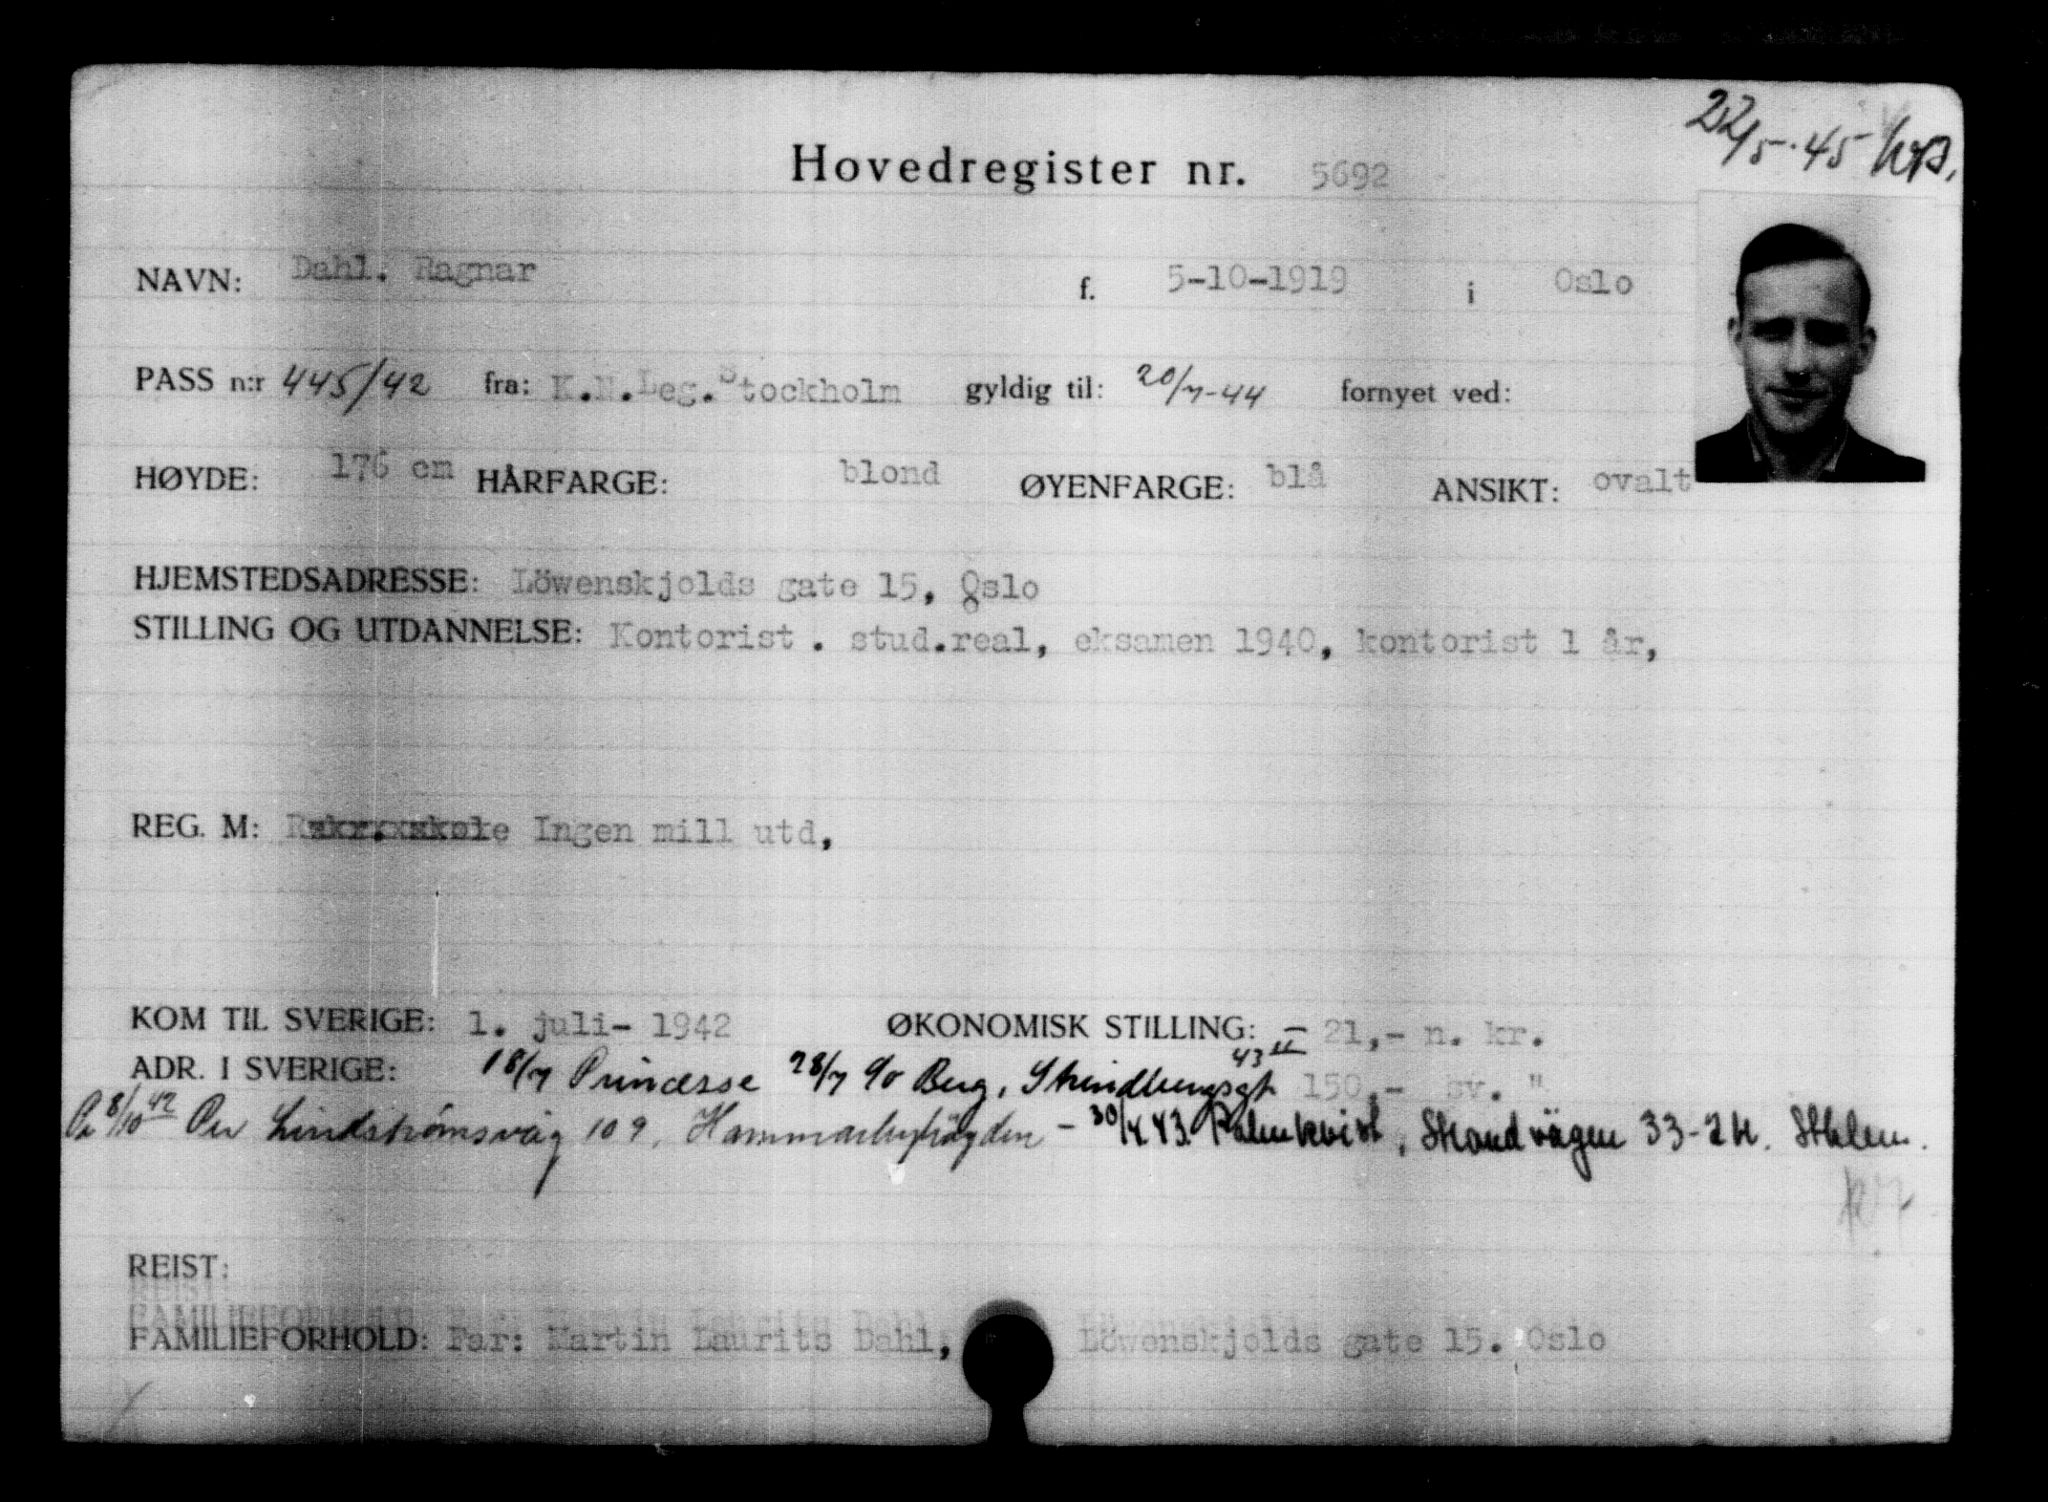 22/5-45
Hovedregister nr. 5692
NAVN: Dahl. Ragnar f. 5-10-1919 i Oslo
PASS n:r 445/42 fra: K.N.Leg.Stockholm gyldig til: 20/7-44 fornyet ved:
HØYDE: 176 cm HÅRFARGE: blond ØYENFARGE: blå ANSIKT: ovalt
HJEMSTEDSADRESSE: Löwenskjolds gate 15, Oslo
STILLING OG UTDANNELSE: Kontorist . stud.real, eksamen 1940, kontorist 1 år,
REG. M: Ingen mill utd,
KOM TIL SVERIGE: 1. juli- 1942 ØKONOMISK STILLING: 21,- n. kr.
ADR. I SVERIGE: 18/7 Princesse 28/7 c/o Berg, Strindbergsgt 43 II 150,- sv. "
8/10 42 Per Lindströmsväg 109, Hammarbyhöyden - 30/4 43. Palmkvist, Strandvägen 33-2tr. Sthlm.
REIST:
FAMILIEFORHOLD: Far: Martin Laurits Dahl, Löwenskjolds gate 15. Oslo